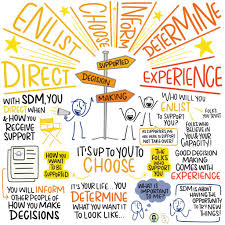 ENLIST
CHOOSE
INFORM
DETERMINE
DIRECT
SUPPORTED
DECISION
MAKING
EXPERIENCE
WITH SDM, YOU
DIRECT WHEN
& HOW YOU
RECEIVE
SUPPORT
WHO WILL YOU
ENLIST
TO SUPPORT
YOU?
FOLKS
YOU TRUST
FOLKS WHO
BELIEVE IN
YOU & YOUR
CAPACITY!
AS SUPPORTERS, WE
ARE HERE TO SUPPORT
NOT TAKE OVER!
HOW YOU
WANT TO BE
SUPPORTED
IT'S UP TO YOU TO
CHOOSE
THE
FOLKS
WHO
SUPPORT
YOU
GOOD DECISION
MAKING
COMES WITH
EXPERIENCE
YOU WILL INFORM
OTHER PEOPLE
OF HOW
YOU MAKE
DECISIONS
IT'S YOUR LIFE... YOU
DETERMINE
WHAT YOU WANT IT
TO LOOK LIKE...
WHAT IS
IMPORTANT
TO ME?
SDM IS ABOUT
HAVING THE
OPPORTUNITY
TO TRY NEW
THINGS!